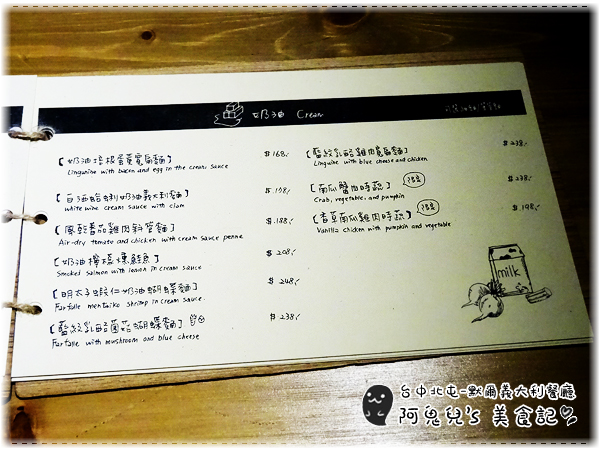 奶油 Cream
【奶油培根蛋黃寬扁麵】 $168.-
Linguine with bacon and egg in the cream sauce
【白酒蛤蜊奶油義大利麵】 $198.-
white wine cream sauce with clam
【風乾番茄雞肉斜管麵】 $188.-
Air-dry tomato and chicken with cream sauce penne
【奶油檸檬燻鮭魚】 $208.-
Smoked salmon with lemon in cream sauce
【明太子蝦仁奶油蝴蝶麵】 $248.-
Farfalle mentaiko shrimp in cream sauce
【藍紋乳酪菌菇蝴蝶麵】 $238.-
Farfalle with mushroom and blue cheese
【藍紋乳酪雞肉寬扁麵】 $238.-
Linguine with blue cheese and chicken
【南瓜蟹肉時蔬】 $238.-
Crab, vegetable, and pumpkin
【香草南瓜雞肉時蔬】 $198.-
Vanilla chicken with pumpkin and vegetable
milk
台中北屯-默爾義大利餐廳
阿兔兒's 美食記